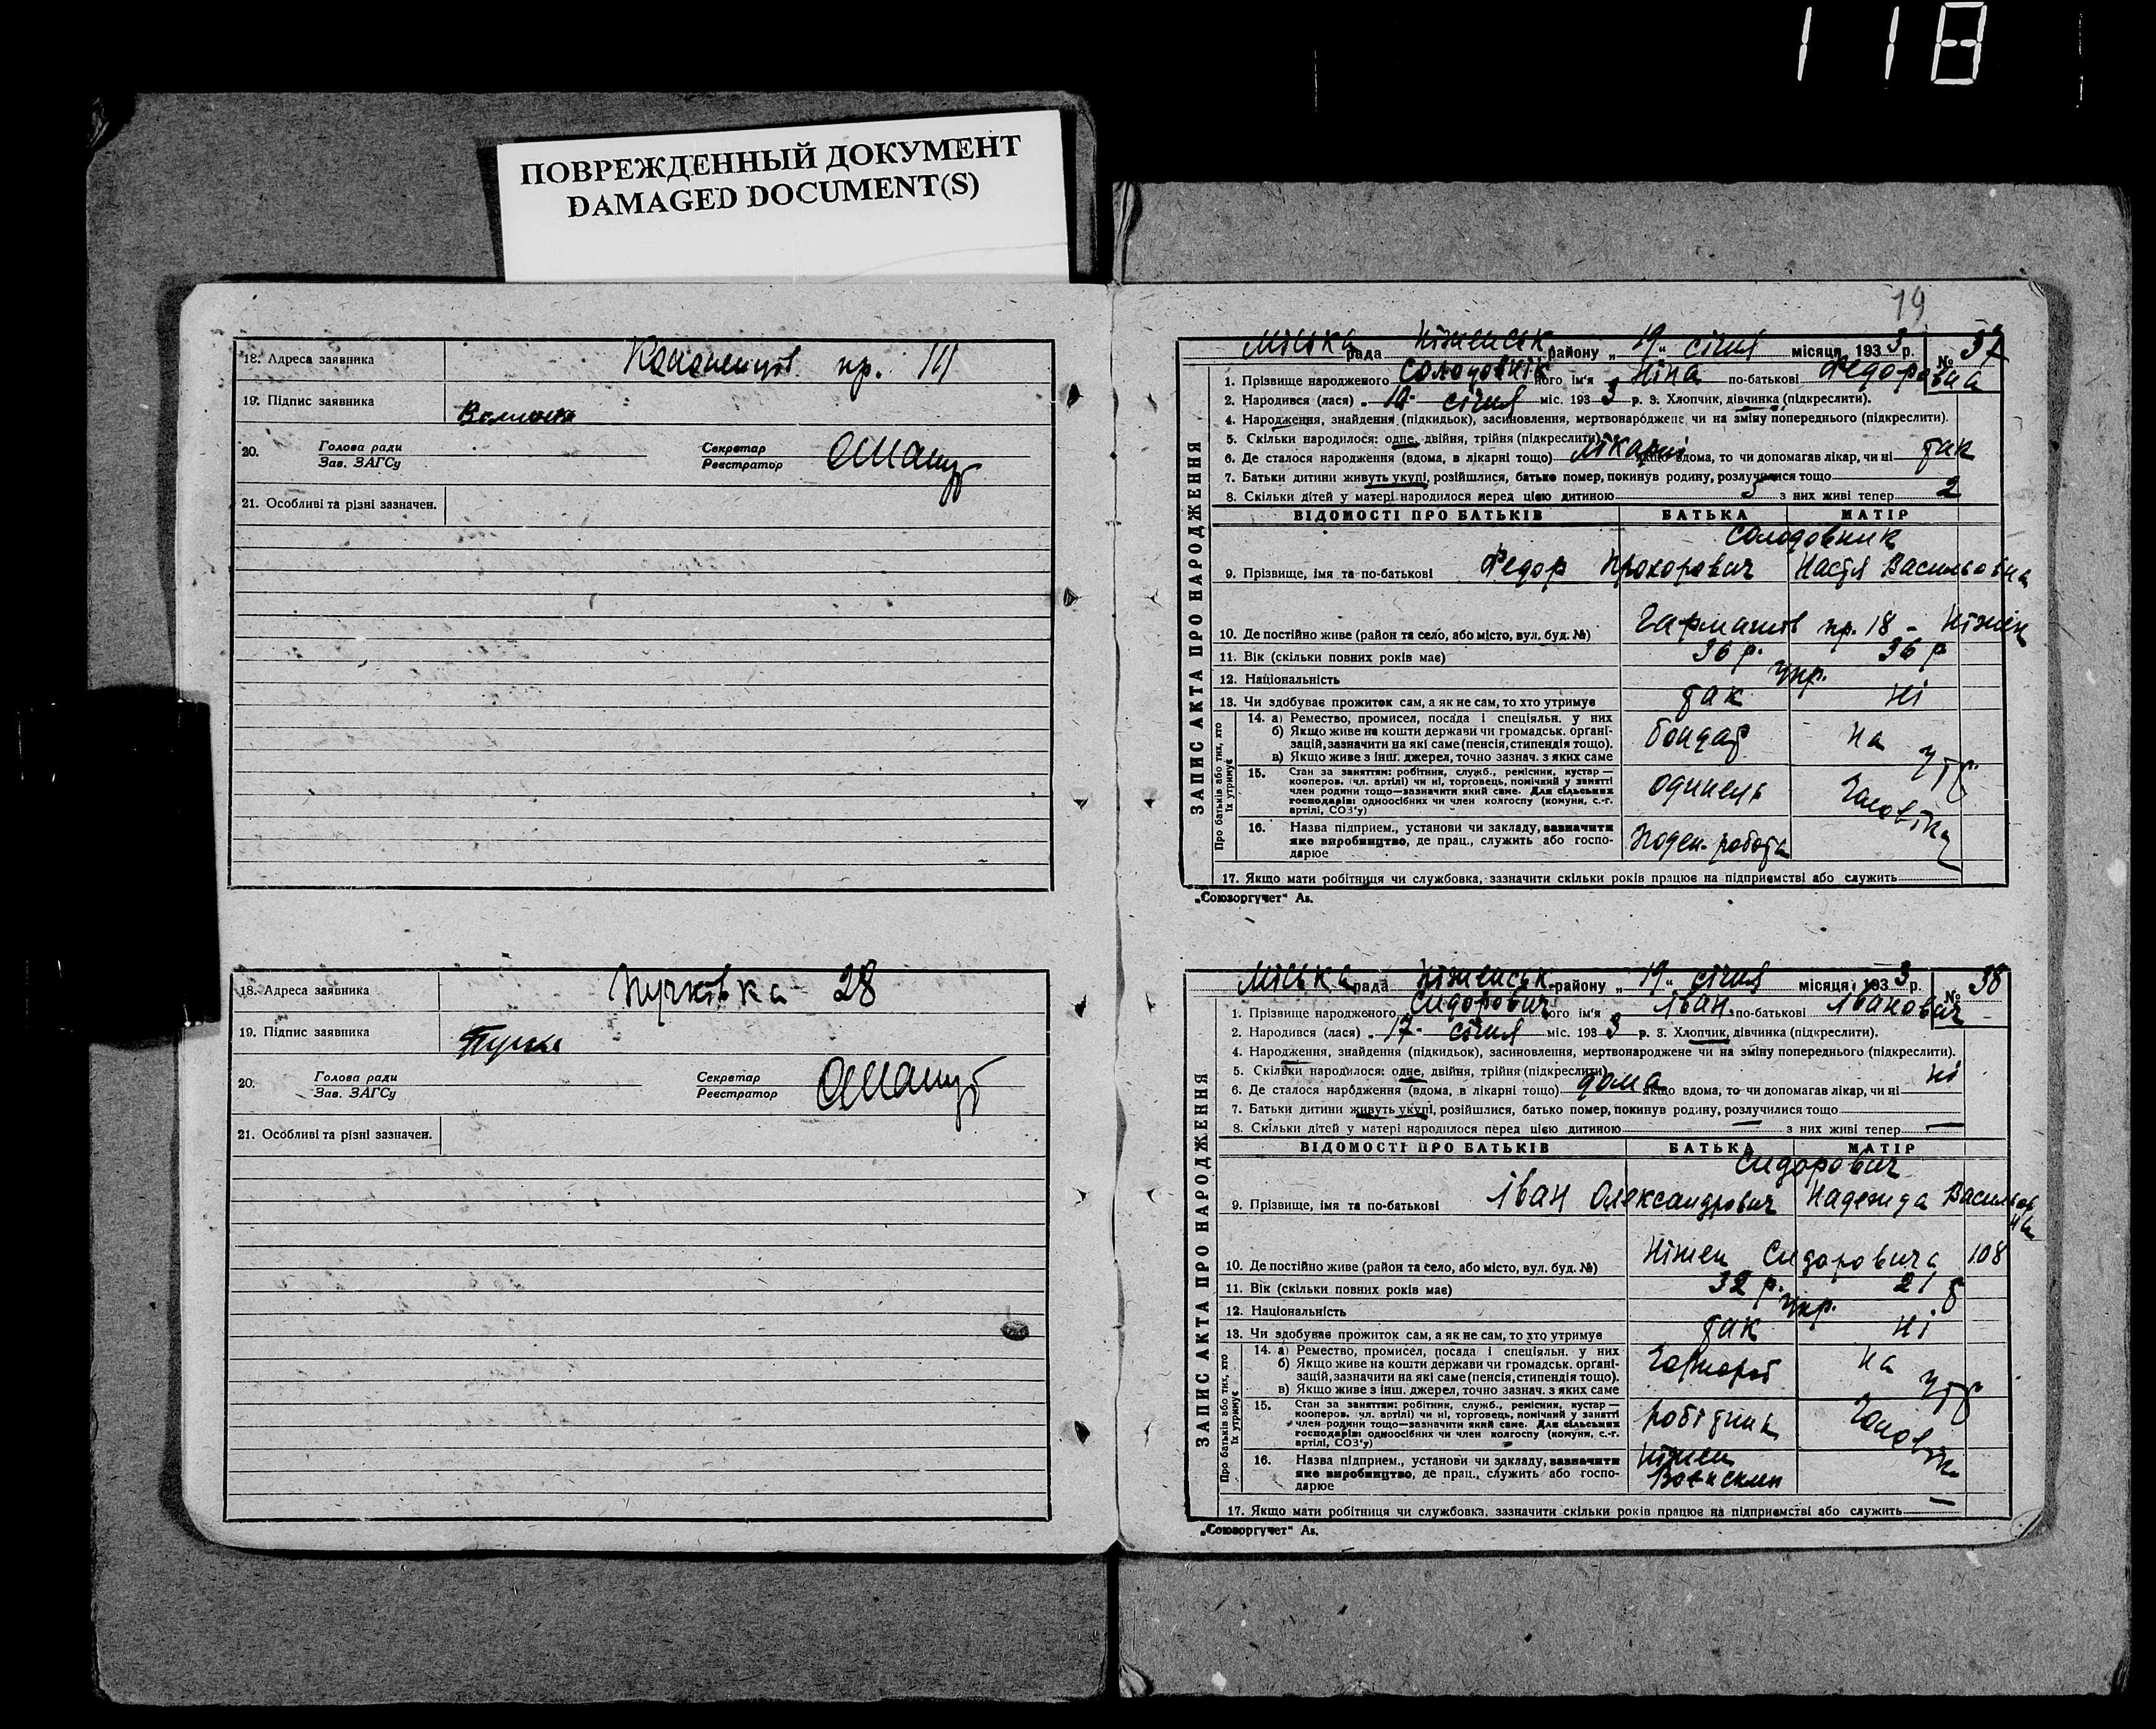 118
ПОВРЕЖДЕННЫЙ ДОКУМЕНТ
DAMAGED DOCUMENT(S)
18. Адреса заявника
пр. 111
19. Підпис заявника
20. Голова ради
Зав. ЗАГСу
Секретар
Реєстратор
21. Особливі та різні зазначен.
18. Адреса заявника Пучківка 28
19. Підпис заявника
20. Голова ради
Зав. ЗАГСу
Секретар
Реєстратор
21. Особливі та різні зазначен.
19
ЗАПИС АКТА ПРО НАРОДЖЕННЯ
Міська рада Ніженськ району „19“ січня місяця 1933 р. № 37
1. Прізвище народженого Солодовнік ного ім'я Ніна по-батькові Федоровна
2. Народився (лася) „ 10- січня міс. 1933 р. 3. Хлопчик, дівчинка (підкреслити).
4. Народження, знайдення (підкидьок), засиновлення, мертвонароджене чи на зміну попереднього (підкреслити).
5. Скільки народилося: одне, двійня, трійня (підкреслити)
6. Де сталося народження (вдома, в лікарні тощо) лікарні якщо вдома, то чи допомагав лікар, чи ні так
7. Батьки дитини живуть укупі, розійшлися, батько помер, покинув родину, розлучилися тощо
8. Скільки дітей у матері народилося перед цією дитиною 5 з них живі тепер 2
ВІДОМОСТІ ПРО БАТЬКІВ БАТЬКА МАТІР
Солодовник
9. Прізвище, імя та по-батькові Федор Прохорович Настя Васильовна
10. Де постійно живе (район та село, або місто, вул. буд. №) Гармашів пр. 18 - Ніжен
11. Вік (скільки повних років має) 36 р. 36 р
12. Національність укр.
13. Чи здобуває прожиток сам, а як не сам, то хто утримує так ні
Про батьків або тих, хто їх утримує
14. а) Ремество, промисел, посада і спеціяльн. у них
б) Якщо живе на кошти держави чи громадськ. організацій, зазначити на які саме (пенсія, стипендія тощо).
в) Якщо живе з інш. джерел, точно зазнач. з яких саме
бондар на утр.
15. Стан за заняттям: робітник, служб., ремісник, кустар —
кооперов. (чл. артілі) чи ні, торговець, помічний у занятті
член родини тощо—зазначити який саме. Для сільських
господарів: одноосібних чи член колгоспу (комуни, с.-г.
артілі, СОЗ'у)
одинець
16. Назва підприєм., установи чи закладу, зазначити
яке виробництво, де прац., служить або господарює
Поден. робота
17. Якщо мати робітниця чи службовка, зазначити скільки років працює на підприємстві або служить
„Союзоргучет“ Ав.
ЗАПИС АКТА ПРО НАРОДЖЕННЯ
Міська рада Ніженськ. району „19“ січня місяця 1933 р. № 38
1. Прізвище народженого Сидорович ного ім'я Іван по-батькові Іванович
2. Народився (лася) „ 17- січня міс. 1933 р. 3. Хлопчик, дівчинка (підкреслити).
4. Народження, знайдення (підкидьок), засиновлення, мертвонароджене чи на зміну попереднього (підкреслити).
5. Скільки народилося: одне, двійня, трійня (підкреслити)
6. Де сталося народження (вдома, в лікарні тощо) дома якщо вдома, то чи допомагав лікар, чи ні ні
7. Батьки дитини живуть укупі, розійшлися, батько помер, покинув родину, розлучилися тощо
8. Скільки дітей у матері народилося перед цією дитиною — з них живі тепер —
ВІДОМОСТІ ПРО БАТЬКІВ БАТЬКА МАТІР
Сидорович
9. Прізвище, імя та по-батькові Іван Олександрович Надежда Васильовна
10. Де постійно живе (район та село, або місто, вул. буд. №) Ніжен Сидоровича 108
11. Вік (скільки повних років має) 32 р. 21
12. Національність укр.
13. Чи здобуває прожиток сам, а як не сам, то хто утримує так ні
Про батьків або тих, хто їх утримує
14. а) Ремество, промисел, посада і спеціяльн. у них
б) Якщо живе на кошти держави чи громадськ. організацій, зазначити на які саме (пенсія, стипендія тощо).
в) Якщо живе з інш. джерел, точно зазнач. з яких саме
на утр
15. Стан за заняттям: робітник, служб., ремісник, кустар —
кооперов. (чл. артілі) чи ні, торговець, помічний у занятті
член родини тощо—зазначити який саме. Для сільських
господарів: одноосібних чи член колгоспу (комуни, с.-г.
артілі, СОЗ'у)
робітник
16. Назва підприєм., установи чи закладу, зазначити
яке виробництво, де прац., служить або господарює
Ніжен
17. Якщо мати робітниця чи службовка, зазначити скільки років працює на підприємстві або служить —
„Союзоргучет“ Ав.